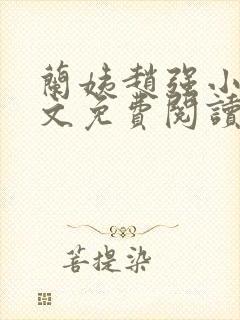 蘭姨趙强小
文免費閱讀
菩提染